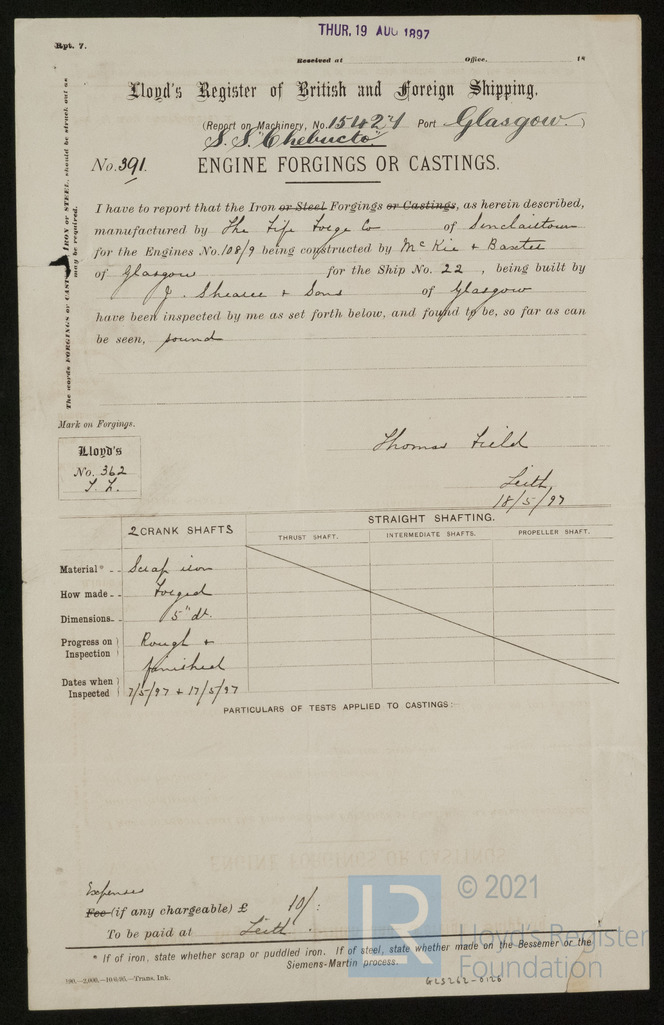 THUR, 19 AUG 1897
Rpt. 7.
Received at Office. 18
Lloyd's Register of British and Foreign Shipping.
(Report on Machinery, No. 15424 Port Glasgow.)
S.S. "Chebucto"
No. 391. ENGINE FORGINGS OR CASTINGS.
The words FORGINGS or CASTINGS, IRON or STEEL, should be struck out as may be required.
I have to report that the Iron or Steel Forgings or Castings, as herein described,
manufactured by The Fife Forge Co of Sinclairtown
for the Engines No. 108/9 being constructed by McKie & Baxter
of Glasgow for the Ship No. 22, being built by
J. Shearer & Sons of Glasgow
have been inspected by me as set forth below, and found to be, so far as can
be seen, sound
Mark on Forgings.
Lloyd's
No. 362
T. F.
Thomas Field
Leith
18/5/97
2 CRANK SHAFTS STRAIGHT SHAFTING.
THRUST SHAFT. INTERMEDIATE SHAFTS. PROPELLER SHAFT.
Material* - - Scrap iron
How made - - Forged
Dimensions - - 5" dr.
Progress on Inspection Rough &
finished
Dates when Inspected 7/5/97 & 17/5/97
PARTICULARS OF TESTS APPLIED TO CASTINGS:
Expenses
Fee (if any chargeable) £ 10/:
To be paid at Leith.
* If of iron, state whether scrap or puddled iron. If of steel, state whether made on the Bessemer or the
Siemens-Martin process.
190.—2,000.—10/6/95.—Trans. Ink.
GLS262-0126
LR
© 2021
Lloyd's Register
Foundation